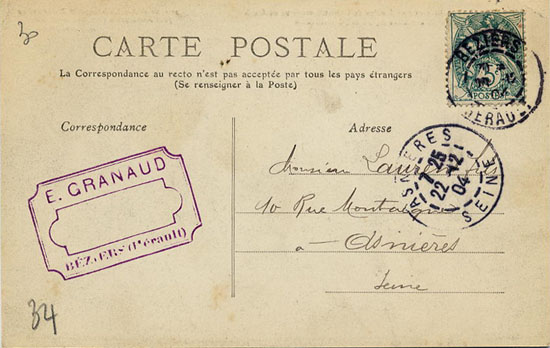 30
CARTE POSTALE
La Correspondance au recto n'est pas acceptée par tous les pays étrangers
(Se renseigner à la Poste)
Correspondance
Adresse
BEZIERS
HERAULT
5c
POSTES
ASNIERES
7 25
22 -12
04
SEINE
E. GRANAUD
BÉZIERS (Hérault)
Monsieur
10 Rue Montaigne
à - Asnières
Seine
34